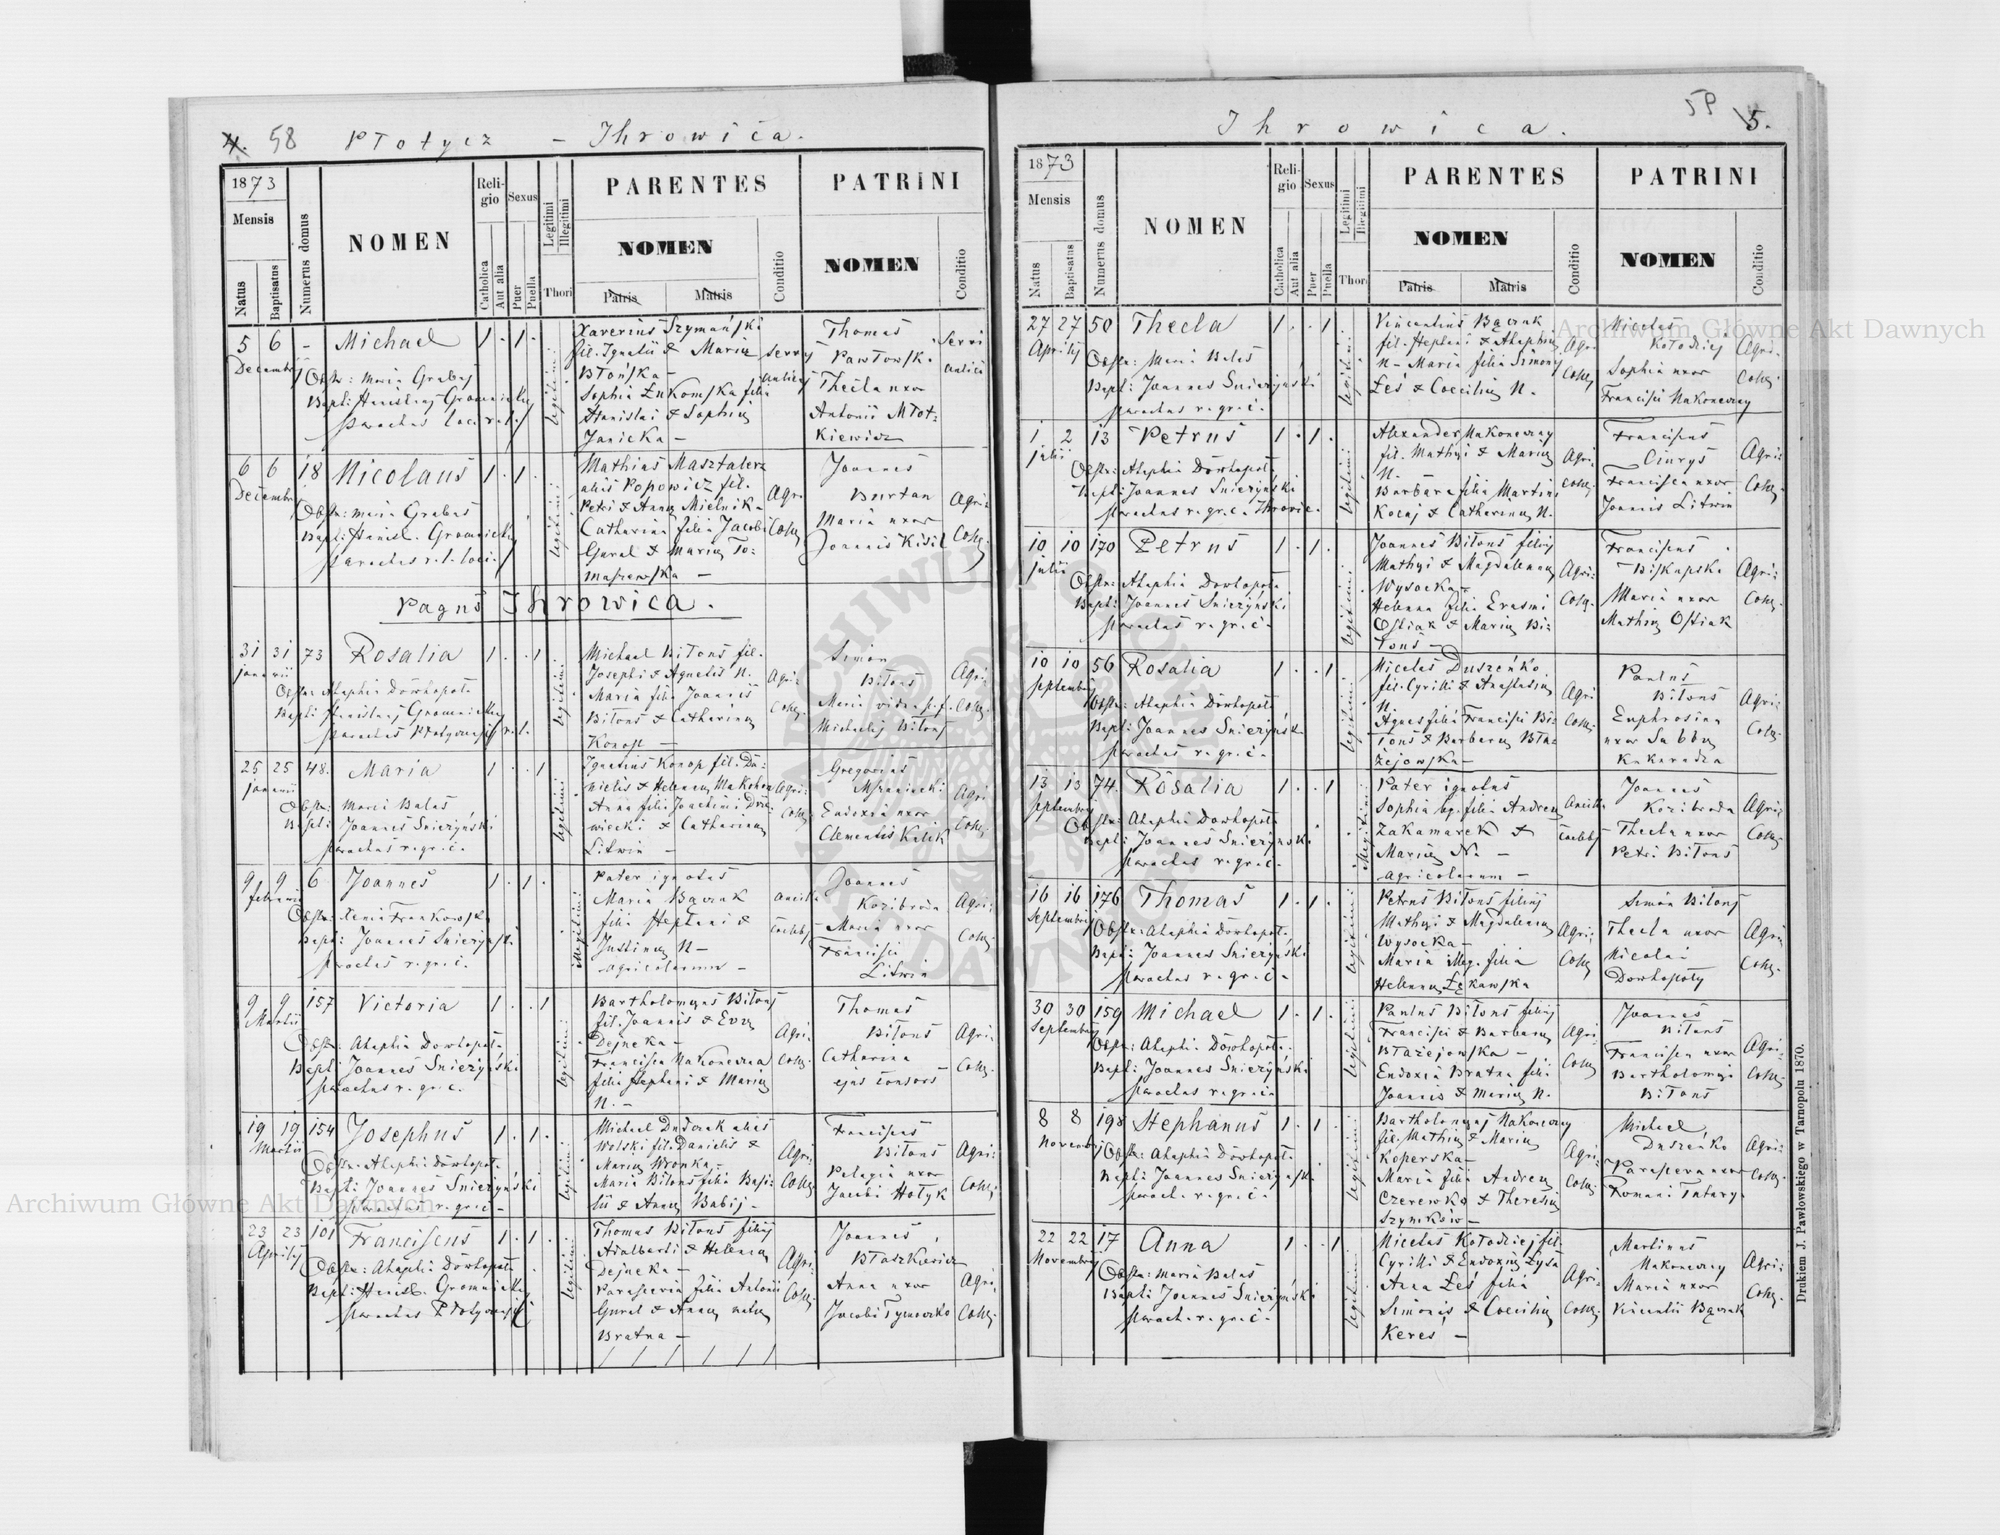 4. 58 Płotycz – Ihrowica.
1873
Mensis
Natus
Baptisatus
Numerus domus
NOMEN
Religio
Catholica
Aut alia
Sexus
Puer
Puella
Legitimi
Illegitimi
Thori
PARENTES
NOMEN
Patris
Matris
Conditio
PATRINI
NOMEN
Conditio
5 6 - Michael 1 . 1 .
Decembris
Obstr: Maria Grabas
Xaverius Szymański
fil. Ignatii & Mariae
Błońska –
Sophia Łukomska filia
Stanislai & Sophiae
Janicka –
Thomas
Pawłowski
Thecla uxor
Antonii Młot:
kiewicz
6 6 18 Nicolaus 1 . 1 .
Decembris
Obstr: Maria Grabas
legitimi
Mathias Masztalerz
alias Popowicz fil.
Petri & Annae Mielnik –
Catharina filia Jacobi
Gural & Mariae To:
maszewska –
Agri
Colae
Joannes
Burtan
Maria uxor
Joannis Kisil
Agri:
Colae.
Pagus Ihrowica.
31 31 73 Rosalia 1 . . 1
januarii
Obstr: Ahaphia Dowhopoła
legitimi
Michael Bitous fil.
Josephi & Agnetis N.
Maria filia Joannis
Bitous & Catharinae
Konop –
Agri:
Colae.
Simon
Bitous
Maria vidua p. f.
Michaelis Bitous
Agri:
Colae.
25 25 48. Maria 1 . . 1
januarii
Obstr: Maria Balas
Bapti: Joannes Śnieżyński
parochus r. gr. c.
legitimi
Ignatius Konop fil. Da:
nielis & Helenae
Anna filia Joachimi
& Catharinae
Litwin –
Agri:
Colae.
Gregorius
Eudoxia uxor
Clementis Kulik
Agri
Colae.
9 9 6 Joannes 1 . 1 .
februarii
Obstr: Xenia Frankowska
Bapt: Joannes Śnieżyński
parochus r. gr. c.
Illegitimi
Pater ignotus
Maria Bączak
filia Stephani &
Justinae N –
agricolarum –
Ancilla
Caelebs
Joannes
Kozibroda
Maria uxor
Francisci
Litwin
Agri:
Colae.
9 9 157 Victoria 1 . . 1
Martii
Obstr: Ahaphia Dowhopoła
Bapt: Joannes Śnieżyński
parochus r. gr. c.
legitimi
Bartholomeus Bitous
fil. Joannis & Evae
Dejneka –
Francisca Nakoneczna
filia Stephani & Mariae
N. –
Agri
Colae.
Thomas
Bitous
Catharina
ejus consors
Agri:
Colae.
19 19 154 Josephus 1 . 1 .
Martii
Obstr: Ahaphia Dowhopoła
Bapti: Joannes Śnieżyński
parochus r. gr. c –
legitimi
Michael Dudczak alias
Wolski fil. Danielis &
Mariae Wronka –
Maria Bitous filia Basi:
lii & Annae Babij –
Agri:
Colae.
Franciscus
Bitous
Pelagia uxor
Jacobi Hołyk
Agri:
Colae.
23 23 101 Franciscus 1 . 1 .
Aprilis
Obstr: Ahaphia Dowhopoła
legitimi
Thomas Bitous filius
Adalberti & Helenae
Dejneka –
Parascevia filia Antonii
Gural & Annae natae
Bratna –
Agri:
Colae.
Joannes
Błaszkiewicz
Anna uxor
Jacobi Tymeczko
Agri:
Colae.
Ihrowica. 59 5.
1873
Mensis
Natus
Baptisatus
Numerus domus
NOMEN
Religio
Catholica
Aut alia
Sexus
Puer
Puella
Legitimi
Illegitimi
Thori
PARENTES
NOMEN
Patris
Matris
Conditio
PATRINI
NOMEN
Conditio
27 27 50 Thecla 1 . . 1
Aprilis
Obstr: Maria Balas
Bapt: Joannes Śnieżyński
parochus r. gr. c.
legitimi
Vincentius Bączak
fil. Stephani & Ahaphiae
N – Maria filia Simonis
Łeś & Coeciliae N.
Agri
Colae.
Nicolas
Kołodziej
Sophia uxor
Francisci Nakoneczny
Agri:
Colae.
1 2 13 Petrus 1 . 1 .
julii
Obstr: Ahaphia Dowhopoła
Bapti: Joannes Śnieżyński
parochus r. gr. c. Ihrovic.
legitimi
Alexander Nakoneczny
fil. Mathiae & Mariae
N. –
Barbara filia Martini
& Catharinae N.
Agri:
Colae.
Franciscus
Ciurys
Francisca uxor
Joannis Litwin
Agri:
Colae.
10 10 170 Petrus 1 . 1 .
julii
Obstr: Ahaphia Dowhopoła
Bapt: Joannes Śnieżyński
parochus r. gr. c.
legitimi
Joannes Bitous filius
Mathiae & Magdalenae
Wysocka –
Helena filia Erasmi
Ostiak & Mariae Bi:
tous –
Agri:
Colae.
Franciscus
Biskupski
Maria uxor
Mathiae Ostiak
Agri:
Colae.
10 10 56 Rosalia 1 . . 1
Septembris
Obstr: Ahaphia Dowhopoła
Bapt: Joannes Śnieżyński
parochus r. gr. c.
legitimi
Nicolas Duszeńko
fil. Cyrilli & Anastasiae
N
Agnes filia Francisci Bi:
tous & Barbarae Bła:
żejowska –
Agri
Colae.
Paulus
Bitous
Euphrosina
uxor Sabbae
Kukuradza
Agri:
Colae.
13 13 74. Rosalia 1 . . 1
Septembris
Obstr: Ahaphia Dowhopoła
Bapti: Joannes Śnieżyński
parochus r. gr. c.
Illegitimi
Pater ignotus
Sophia filia Andreae
Zakamarek &
Mariae N. –
agricolarum –
Ancilla
Caelebs
Joannes
Kozibroda
Thecla uxor
Petri Bitous
Agri:
Colae.
16 16 176 Thomas 1 . 1 .
Septembris
Obstr: Ahaphia Dowhopoł.
Bapti: Joannes Śnieżyński
parochus r. gr. c.
legitimi
Petrus Bitous filius
Mathiae & Magdalenae
Wysocka –
Maria filia
Helenae Łękawska
Agri:
Colae
Simon Bitous
Thecla uxor
Nicolai
Dowhopoły
Agri:
Colae.
30 30 159 Michael 1 . 1 .
Septembris
Obstr: Ahaphia Dowhopoła
Bapti: Joannes Śnieżyński
parochus r. gr. c.
legitimi
Paulus Bitous filius
Francisci & Barbarae
Błażejowska –
Eudoxia Bratna filia
Joannis & Mariae N.
Agri
Colae
Joannes
Bitous
Francisca uxor
Bartholomaei
Bitous
Agri:
Colae.
8 8 198 Stephanus 1 . 1 .
Novembris
Obstr: Ahaphia Dowhopoł.
Bapti: Joannes Śnieżyński
paroch. r. gr. c.
legitimi
Bartholomaeus Nakoneczny
fil. Mathiae & Mariae
Koperska –
Maria filia Andreae
Czerewko & Theresiae
Szymków –
Agri:
Colae.
Michael
Duszeńko
Parasceva uxor
Romani Tatary
Agri:
Colae.
22 22 17 Anna 1 . . 1
Novembris
Obstr: Maria Balas
Bapti: Joannes Śnieżyński
paroch. r. gr. c.
legitimi
Nicolas Kołodziej fil.
Cyrilli & Eudoxiae Łysa
Anna Łeś filia
Simonis & Coeciliae
Keres –
Agri:
Colae.
Martinus
Nakoneczny
Maria uxor
Vincentii Bączak
Agri:
Colae.
Drukiem J. Pawłowskiego w Tarnopolu 1870.
Archiwum Główne Akt Dawnych
Archiwum Główne Akt Dawnych
ARCHIWUM GŁÓWNE AKT DAWNYCH